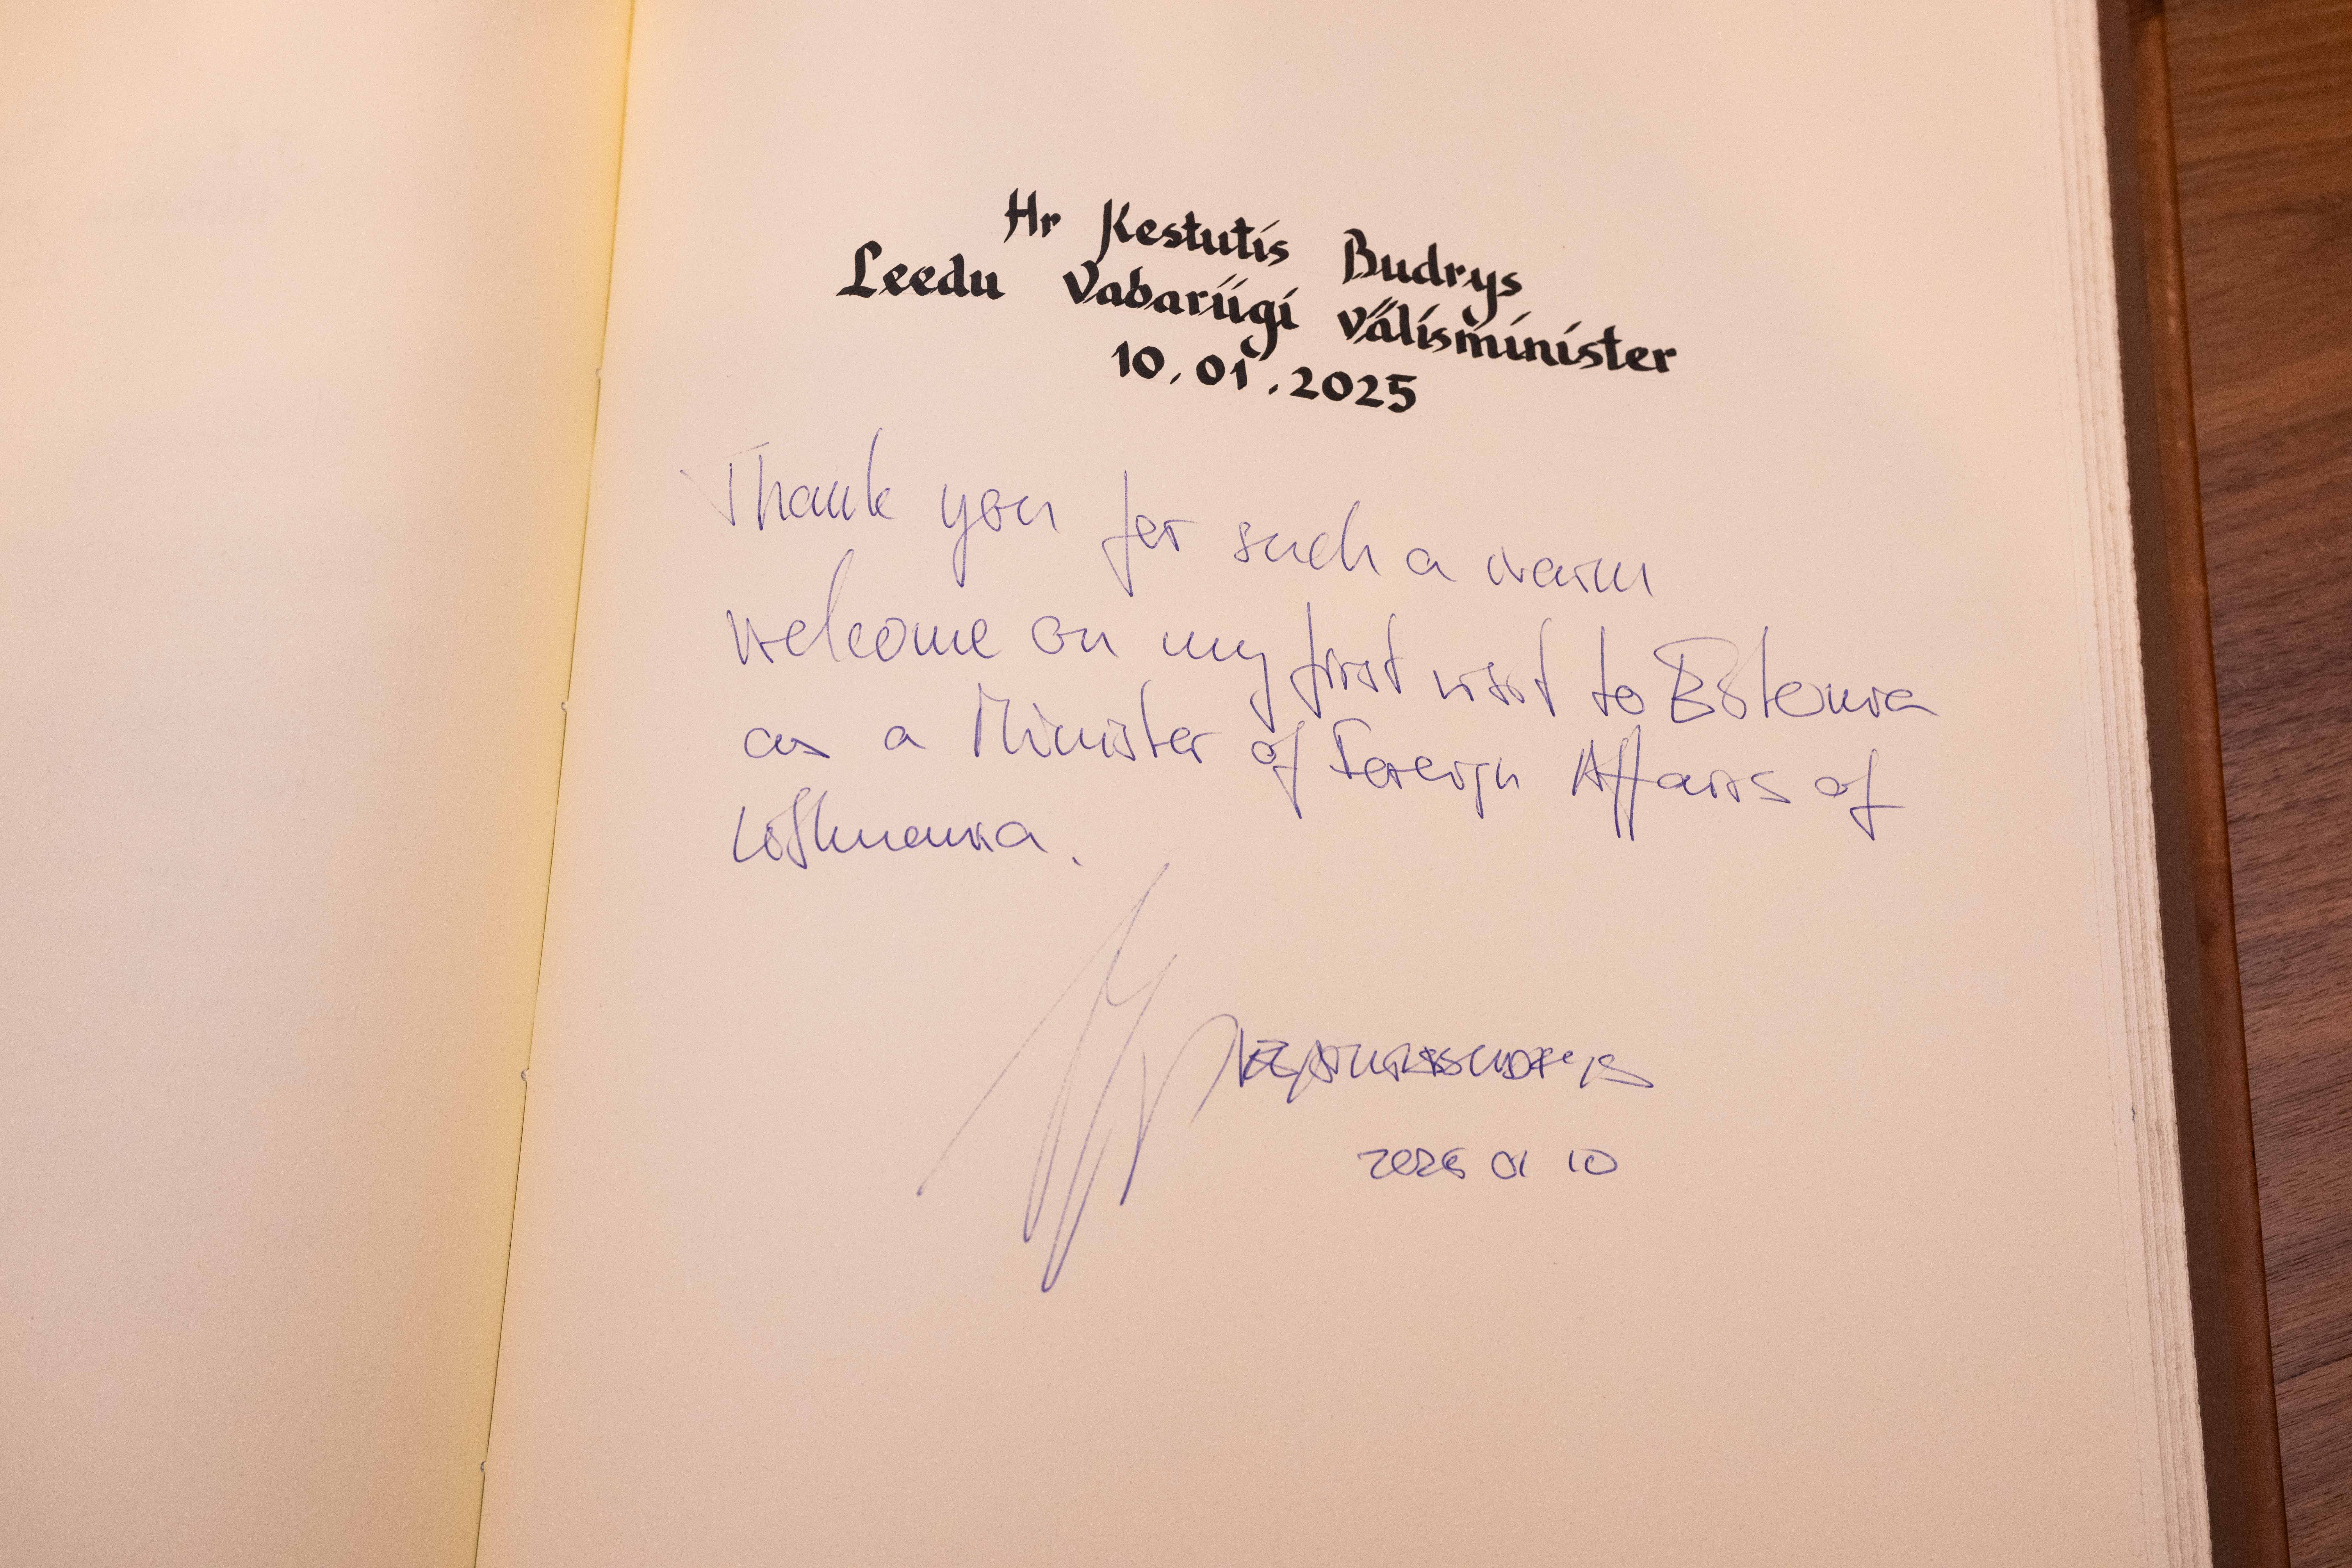 Hr Kestutis Budrys
Leedu Vabariigi välisminister
10.01.2025
Thank you for such a warm
welcome on my first visit to Estonia
as a Minister of Foreign Affairs of
Lithuania.
2025 01 10